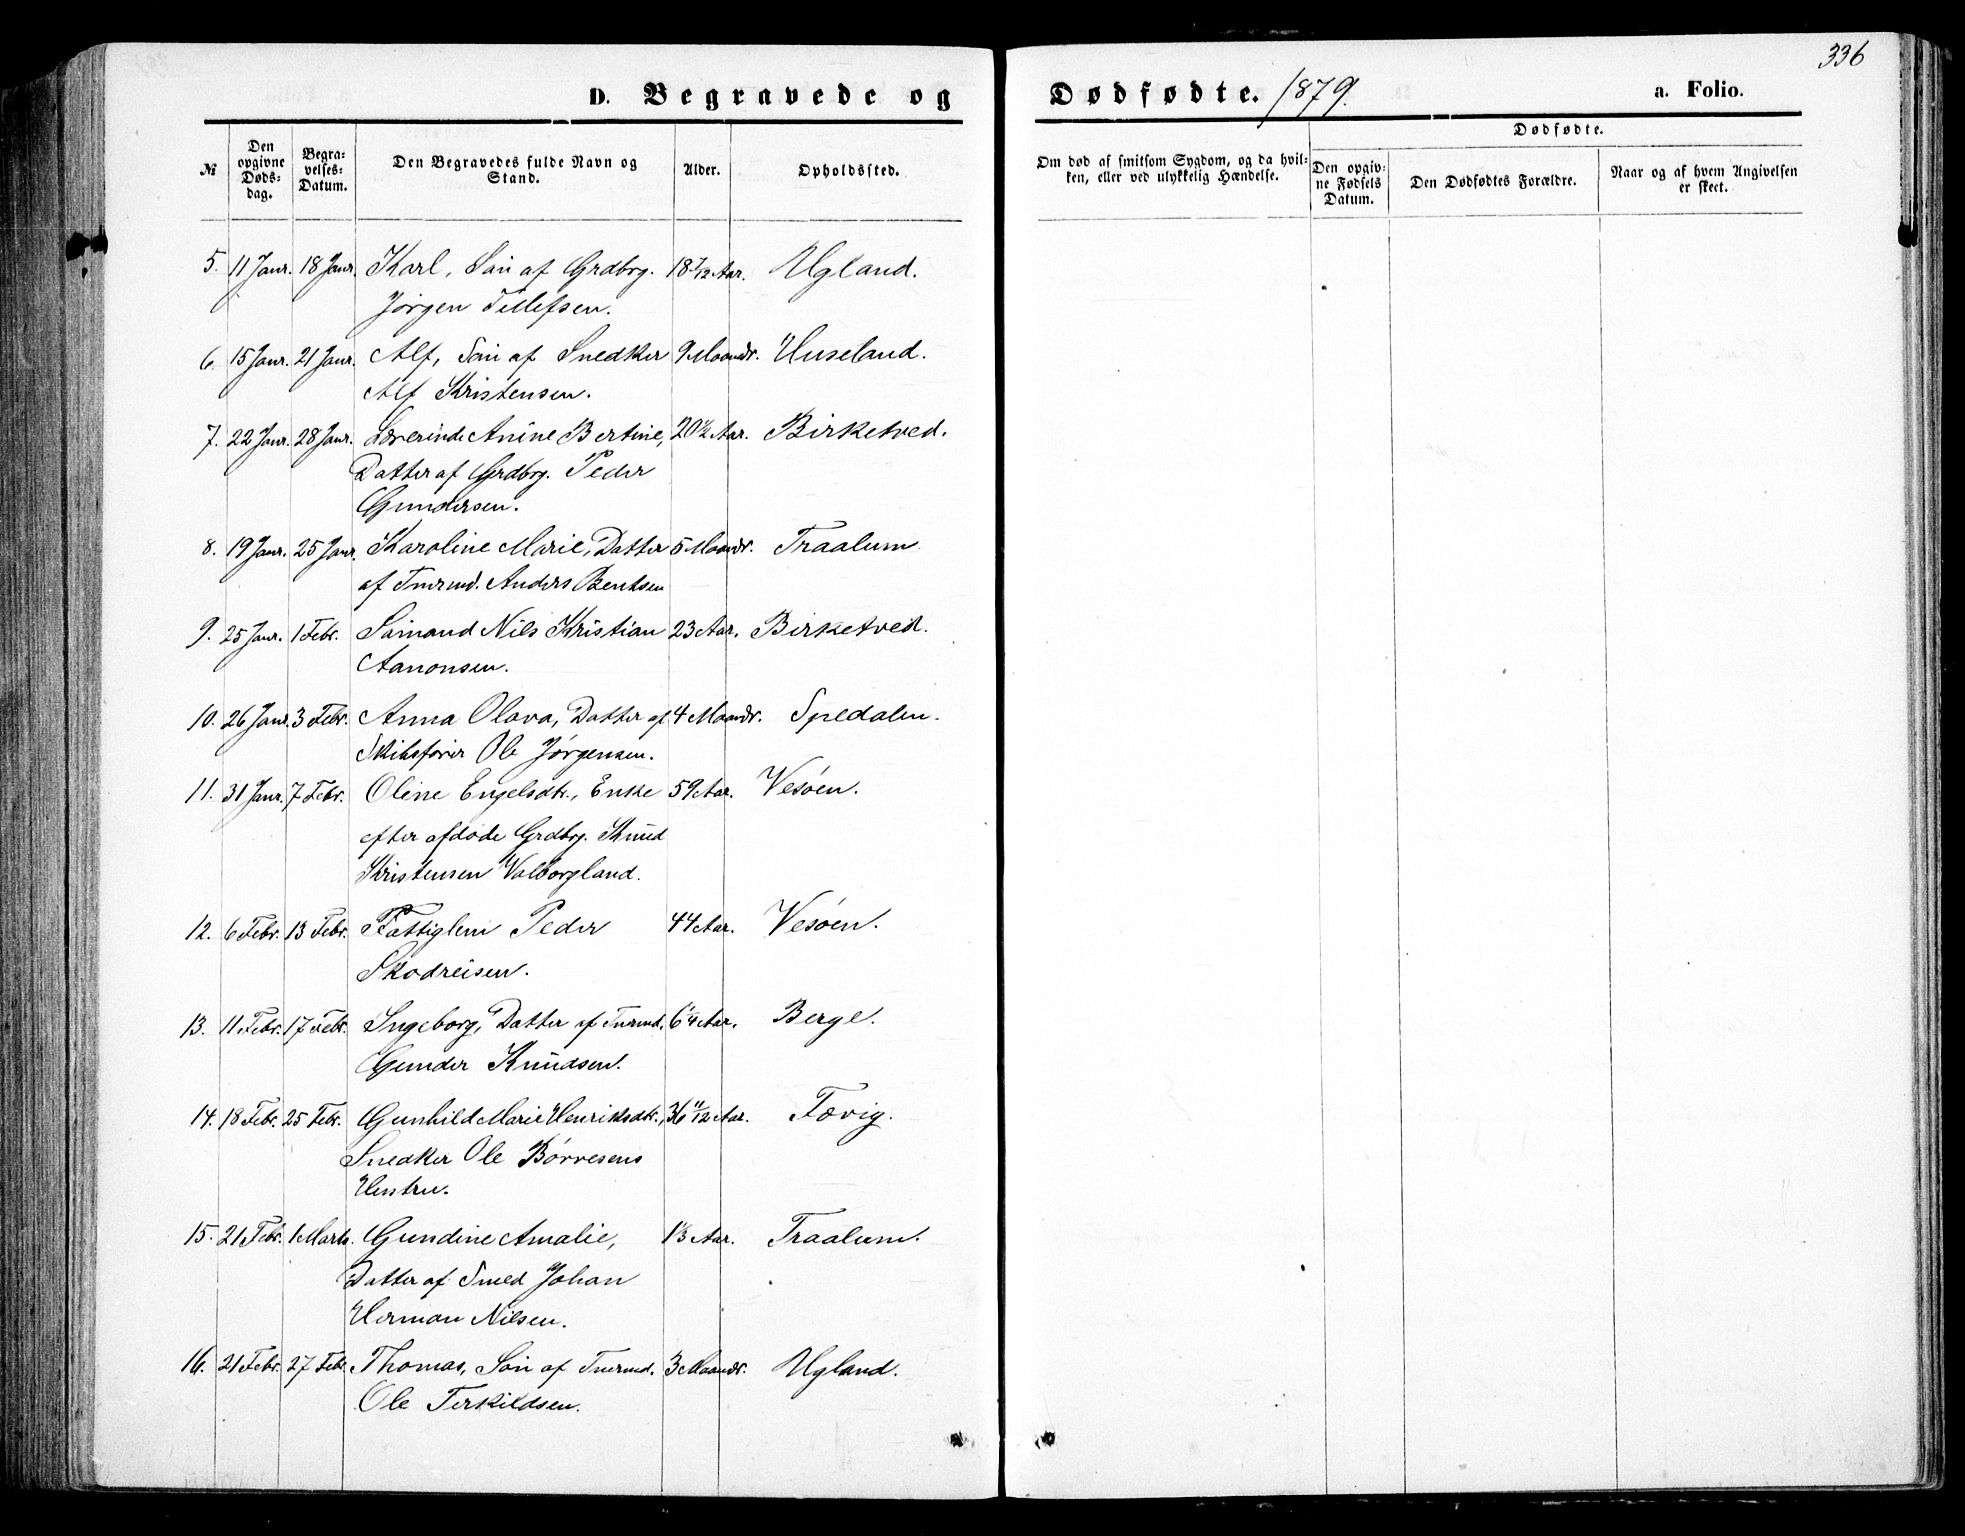 336
D. Begravede og Dødfødte. 1879. a. Folio.
№ Den opgivne Døds-dag. Begra-velses-Datum. Den Begravedes fulde Navn og Stand. Alder. Opholdssted. Om død af smitsom Sygdom, og da hvil-ken, eller ved ulykkelig Hændelse. Dødfødte. Den opgiv-ne Fødsels Datum. Den Dødfødtes Forældre. Naar og af hvem Angivelsen er skeet.
5. 11 Janr. 18 Janr. Karl, Søn af Grdbrg. 18 7/12 Aar. Ugland.
Jørgen Tellefsen.
6. 15 Janr. 21 Janr. Alf, Søn af Snedker 9 Maandr. Huseland.
Alf Kristensen.
7. 22 Janr. 28 Janr. Lærerinde Anine Bertine, 20 1/2 Aar. Birketved.
Datter af Grdbrg. Peder
Gundersen.
8. 19 Janr. 25 Janr. Karoline Marie, Datter 5 Maandr. Traalum
af Tmrmd. Anders Bentsen
9. 25 Janr. 1 Febr. Sømand Nils Kristian 23 Aar. Birketved.
Aanonsen.
10. 26 Janr. 3 Febr. Anna Olava, Datter af 4 Maandr. Spedalen.
Skibsfører Ole Jørgensen.
11. 31 Janr. 7 Febr. Oline Engelsdtr., Enke 59 Aar. Vesøen.
efter afdøde Grdbrg. Knud
Kristensen Valborgland.
12. 6 Febr. 13 Febr. Fattiglem Peder 44 Aar. Vesøen.
Skodreisen.
13. 11 Febr. 17 Febr. Ingeborg, Datter af Tmrmd. 6 1/4 Aar. Berge.
Gunder Knudsen.
14. 18 Febr. 25 Febr. Gunhild Marie Henriksdtr., 36 11/12 Aar. Fævig.
Snedker Ole Børresens
Hustru.
15. 21 Febr. 1 Marts. Gundine Amalie, Aar. Traalum.
Datter af Smed Johan
Herman Nilsen.
16. 21 Febr. 27 Febr. Thomas, Søn af Tmrmd. 3 Maandr. Ugland.
Ole Terkildsen.